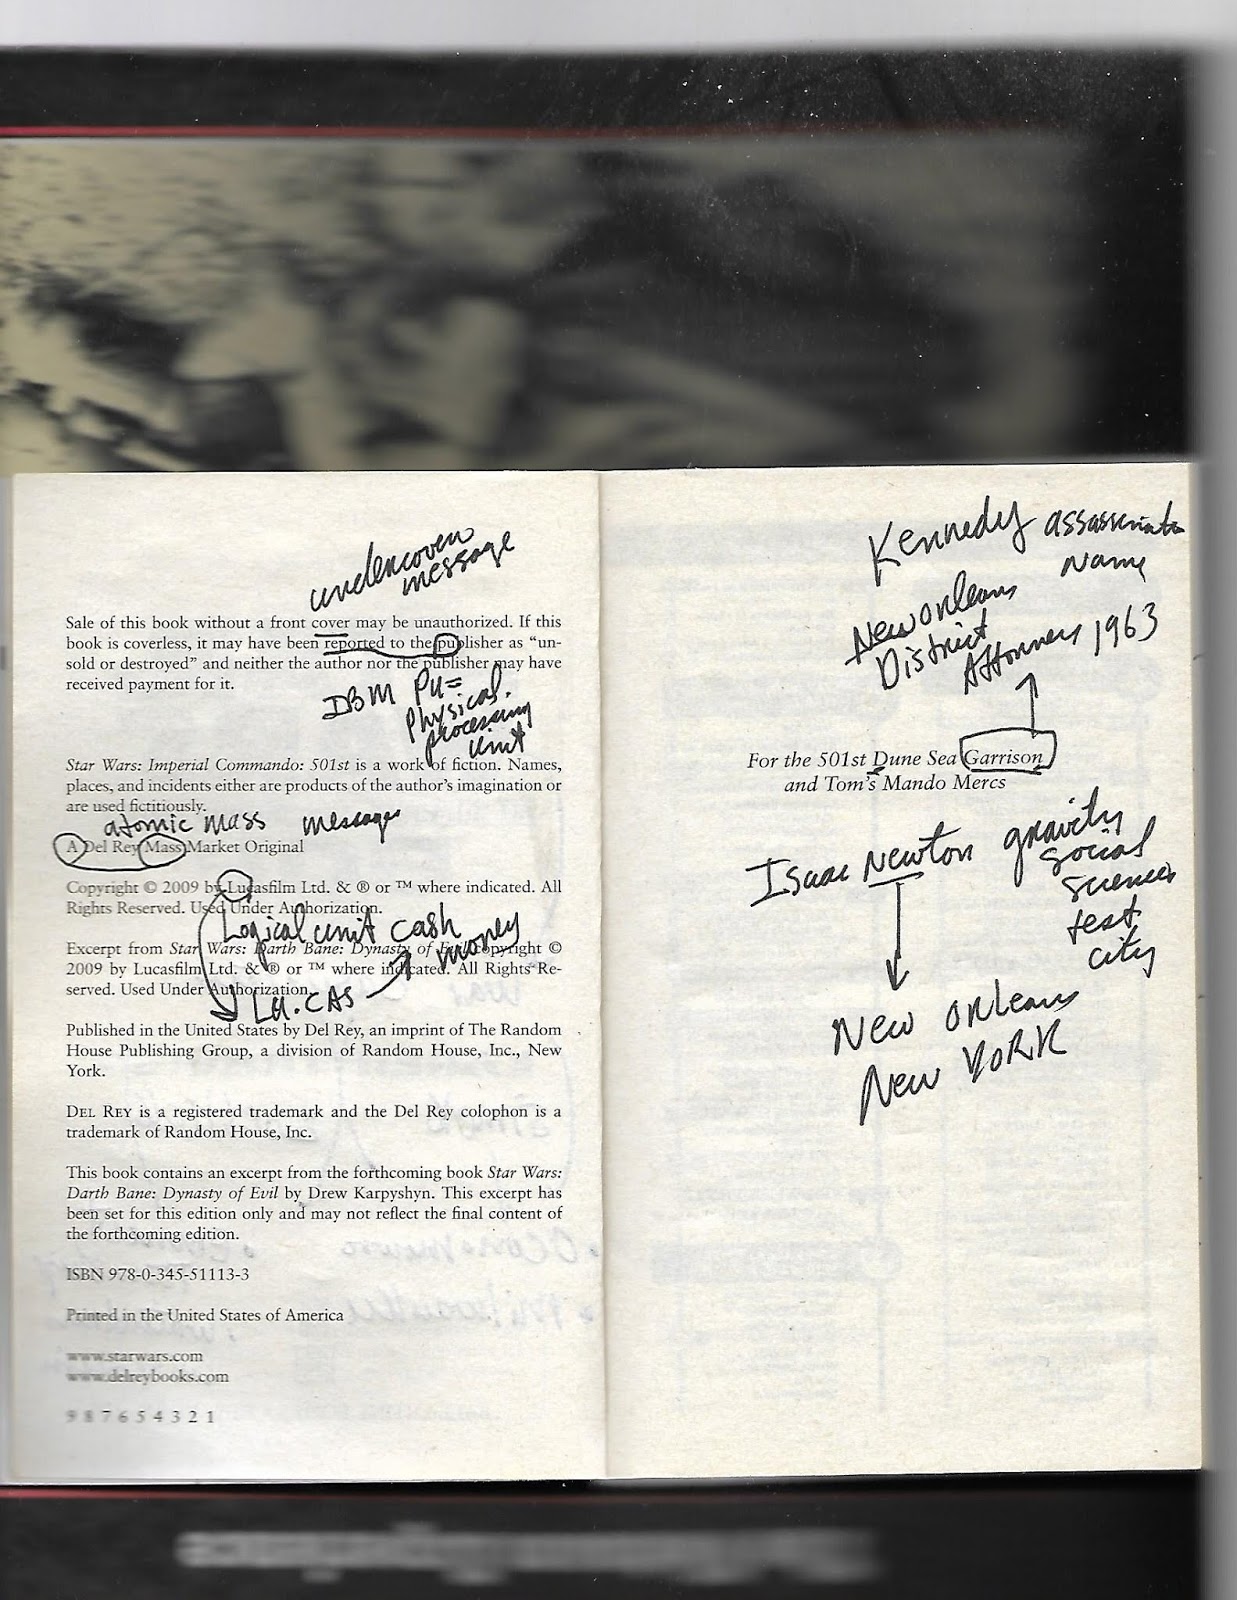 undercover
message
Sale of this book without a front cover may be unauthorized. If this
book is coverless, it may have been reported to the publisher as “un-
sold or destroyed” and neither the author nor the publisher may have
received payment for it.
IBM PU=
Physical
processing
unit
Star Wars: Imperial Commando: 501st is a work of fiction. Names,
places, and incidents either are products of the author’s imagination or
are used fictitiously.
atomic mass message
A Del Rey Mass Market Original
Copyright © 2009 by Lucasfilm Ltd. & ® or ™ where indicated. All
Rights Reserved. Used Under Authorization.
Logical unit cash
money
Excerpt from Star Wars: Darth Bane: Dynasty of Evil copyright ©
2009 by Lucasfilm Ltd. & ® or ™ where indicated. All Rights Re-
served. Used Under Authorization.
Lu.CAS
Published in the United States by Del Rey, an imprint of The Random
House Publishing Group, a division of Random House, Inc., New
York.
DEL REY is a registered trademark and the Del Rey colophon is a
trademark of Random House, Inc.
This book contains an excerpt from the forthcoming book Star Wars:
Darth Bane: Dynasty of Evil by Drew Karpyshyn. This excerpt has
been set for this edition only and may not reflect the final content of
the forthcoming edition.
ISBN 978-0-345-51113-3
Printed in the United States of America
www.starwars.com
www.delreybooks.com
9 8 7 6 5 4 3 2 1
Kennedy assassination
Name
New Orleans
District
Attorney 1963
For the 501st Dune Sea Garrison
and Tom’s Mando Mercs
Isaac Newton gravity
social
sciences
test
city
New Orleans
New YORK